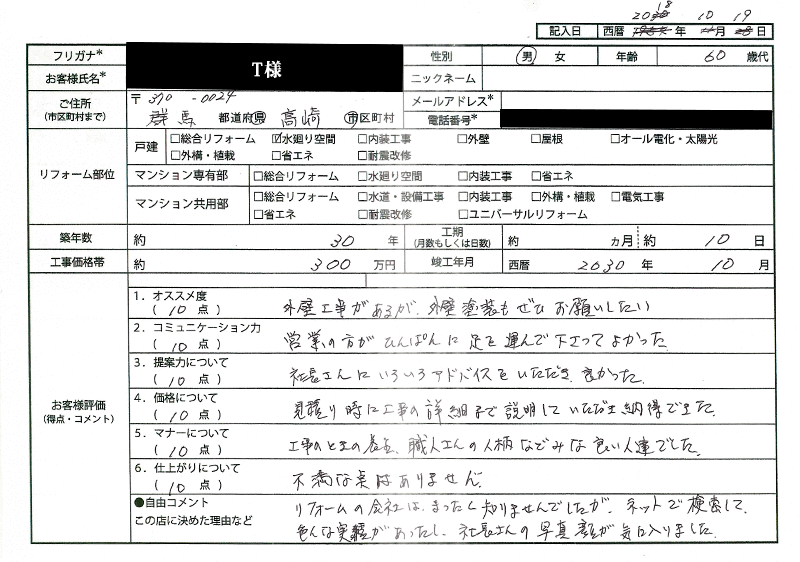 18
20 10 19
記入日 西暦 年 月 日
フリガナ* T様 性別 男 女 年齢 60 歳代
お客様氏名* ニックネーム
ご住所 〒370-0024 メールアドレス*
(市区町村まで) 群馬 都道府県 高崎 市区町村 電話番号*
リフォーム部位 戸建 □総合リフォーム ☑水廻り空間 □内装工事 □外壁 □屋根 □オール電化・太陽光
□外構・植栽 □省エネ □耐震改修
マンション専有部 □総合リフォーム □水廻り空間 □内装工事 □省エネ
マンション共用部 □総合リフォーム □水道・設備工事 □内装工事 □外構・植栽 □電気工事
□省エネ □耐震改修 □ユニバーサルリフォーム
築年数 約 30 年 工期 (月数もしくは日数) 約 ヵ月 約 10 日
工事価格帯 約 300 万円 竣工年月 西暦 2030 年 10 月
お客様評価
(得点・コメント)
1．オススメ度
(10 点) 外壁工事があるが、外壁塗装もぜひお願いしたい
2．コミュニケーション力
(10 点) 営業の方がひんぱんに足を運んで下さってよかった
3．提案力について
(10 点) 社長さんにいろいろアドバイスをいただき 良かった。
4．価格について
(10 点) 見積り時に工事の詳細まで説明していただき納得できた
5．マナーについて
(10 点) 工事のときの 職人さんの人柄などみな良い人達でした。
6．仕上がりについて
(10 点) 不満な点はありません。
●自由コメント リフォームの会社は、まったく知りませんでしたが、ネットで検索して、
この店に決めた理由など 色んな実績があったし、社長さんの写真顔が気に入りました